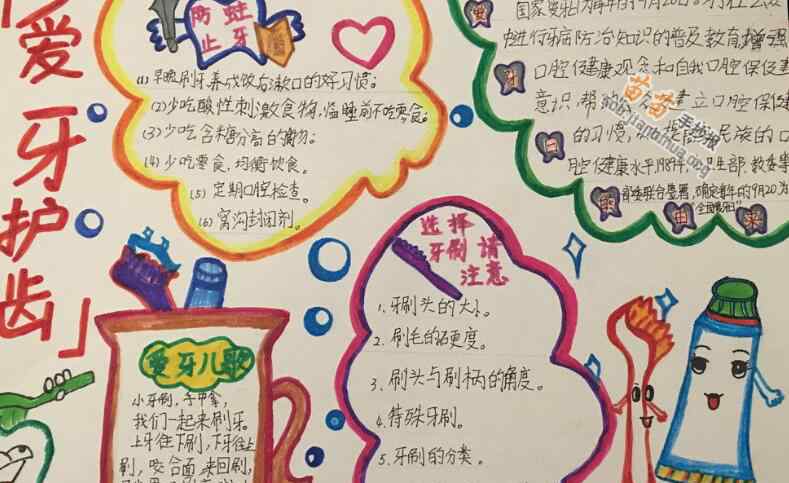 爱牙护齿
防蛀
止牙
(1) 早晚刷牙养成饭后漱口的好习惯;
(2) 少吃酸性刺激食物,临睡前不吃零食;
(3) 少吃含糖分高的食物;
(4) 少吃零食,均衡饮食。
(5) 定期口腔检查。
(6) 窝沟封闭剂。
进行牙病防治知识的普及教育,增强
口腔健康观念和自我口腔保健
意识,帮
立口腔保健
的习惯,
民族的口
腔健康水平,1989年,卫生部,教委等
部委联合签署,确定每年的9月20为
爱
牙
日
的
由
来
苗苗手抄报
选择
牙刷请
注意
1、牙刷头的大小。
2、刷毛的硬度。
3、刷头与刷柄的角度。
4、特殊牙刷。
5、牙刷的分类。
爱牙儿歌
小牙刷,手中拿,
我们一起来刷牙。
上牙往下刷,下牙往上
刷,咬合面来回刷,